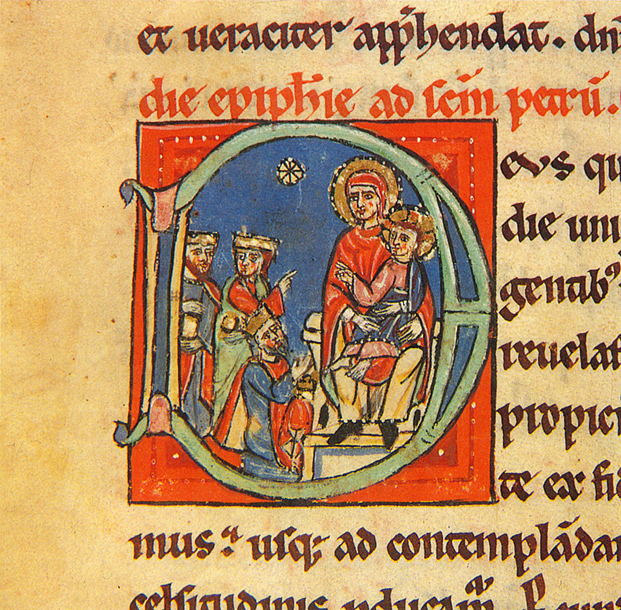 et ueraciter app̄hendat. dn̄
die epiph̄ie ad sc̄m petrū.
Deus qu
die uni
gentib᾽
reuelas
propici
te ex fid
mus: usq; ad contemplādam
celsitudinis